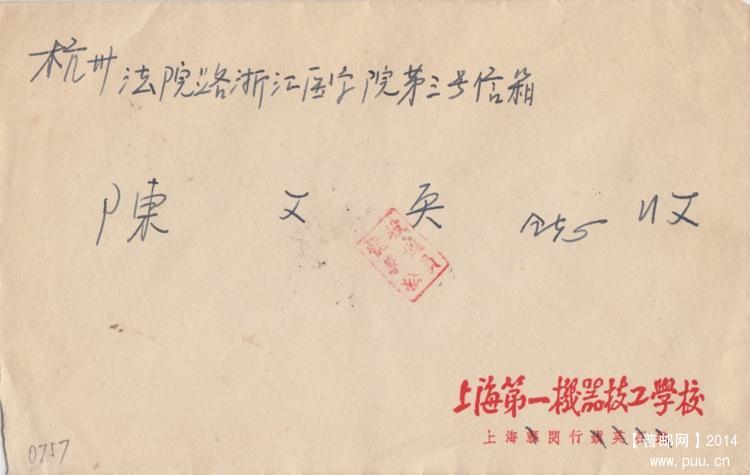 杭州法院路浙江医学院第三号信箱
陳文英 同志 收
投遞員
上海第一機器技工學校
上海縣閔行
0757
【普邮网】2014
www.puu.cn